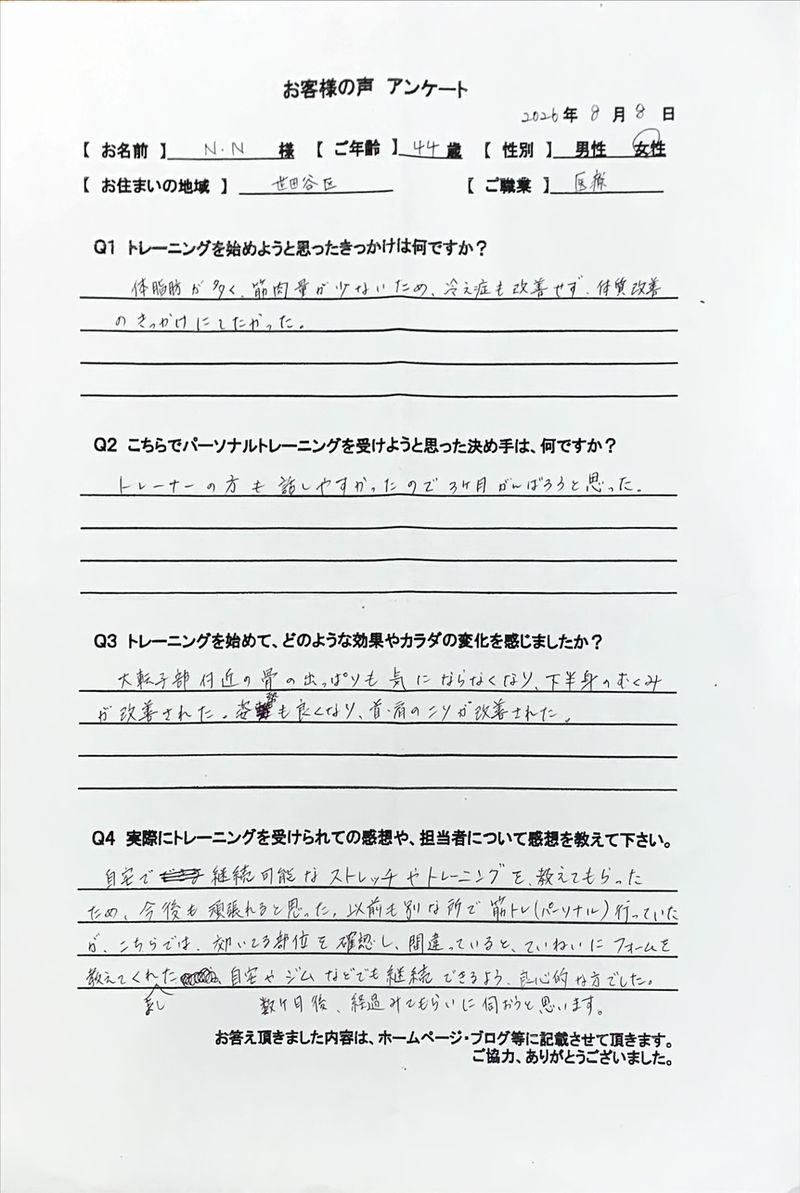 お客様の声 アンケート
2026年 8月 8日
【 お名前 】 N・N 様 【 ご年齢 】 44 歳 【 性別 】 男性 女性
【 お住まいの地域 】 世田谷区 【 ご職業 】 医療
Q1 トレーニングを始めようと思ったきっかけは何ですか?
体脂肪が多く、筋肉量が少ないため、冷え症も改善せず、体質改善
のきっかけにしたかった。
Q2 こちらでパーソナルトレーニングを受けようと思った決め手は、何ですか?
トレーナーの方も話しやすかったので3ヶ月がんばろうと思った。
Q3 トレーニングを始めて、どのような効果やカラダの変化を感じましたか?
大転子部付近の骨の出っぱりも気にならなくなり、下半身のむくみ
が改善された。姿勢も良くなり、首・肩のこりが改善された。
Q4 実際にトレーニングを受けられての感想や、担当者について感想を教えて下さい。
自宅で継続可能なストレッチやトレーニングを、教えてもらった
ため、今後も頑張れると思った。以前も別な所で筋トレ(パーソナル)行っていた
が、こちらでは、効いてる部位を確認し、間違っていると、ていねいにフォームを
教えてくれた 自宅やジムなどでも継続できるよう、良心的な方でした。
し 数ヶ月後、経過みてもらいに伺おうと思います。
お答え頂きました内容は、ホームページ・ブログ等に記載させて頂きます。
ご協力、ありがとうございました。